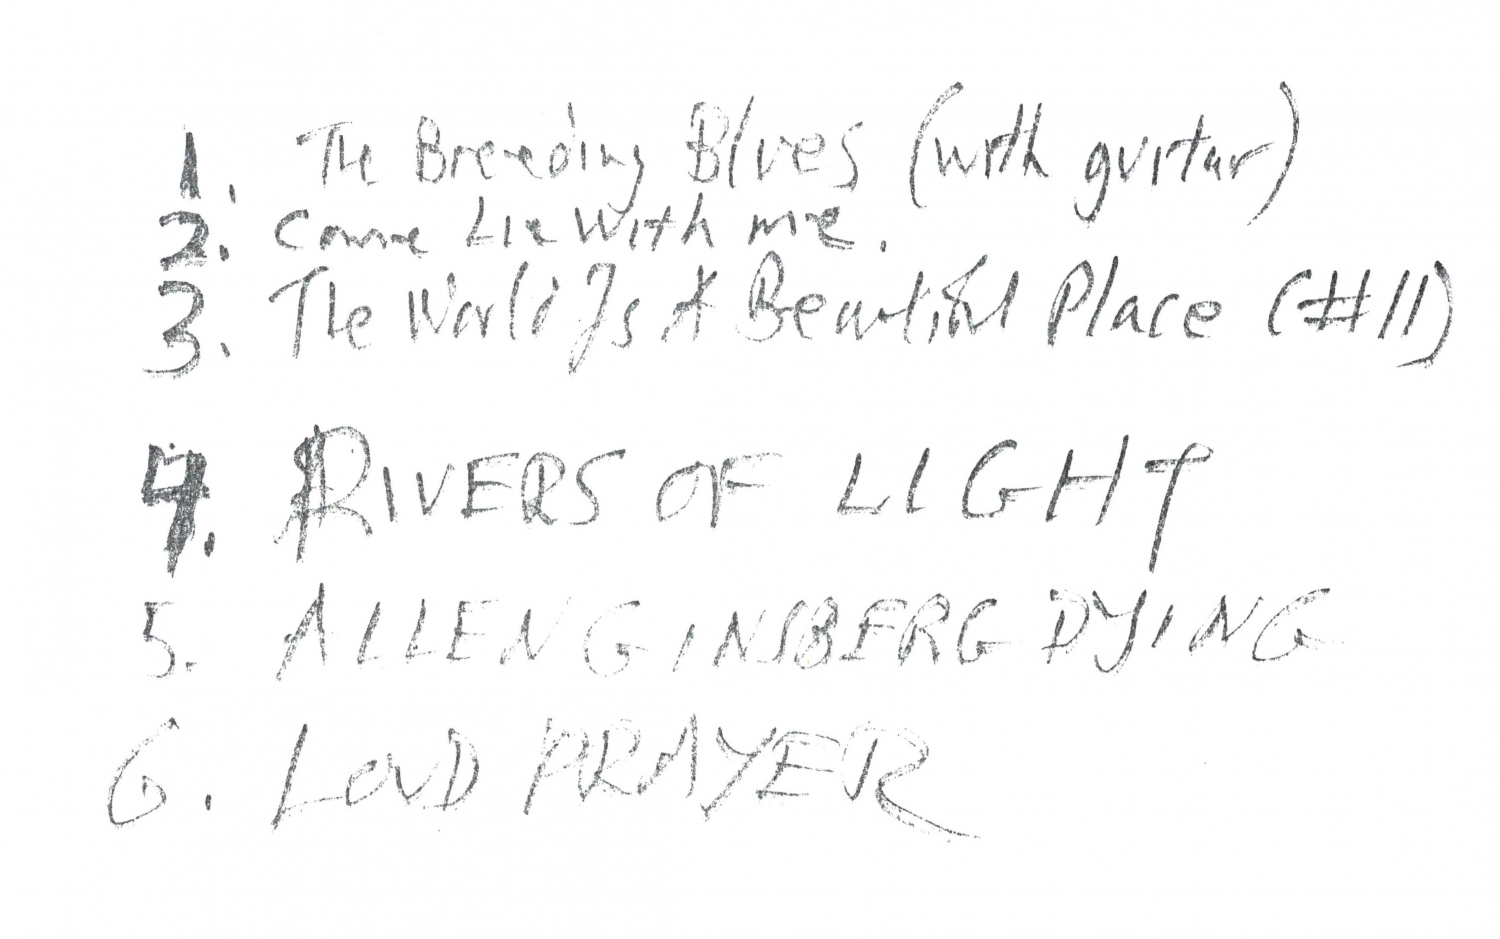 1. The Breeding Blues (with guitar)
2. Come Lie With me.
3. The World Is A Beautiful Place (#11)
4. RIVERS OF LIGHT
5. ALLEN GINSBERG DYING
6. LOUD PRAYER